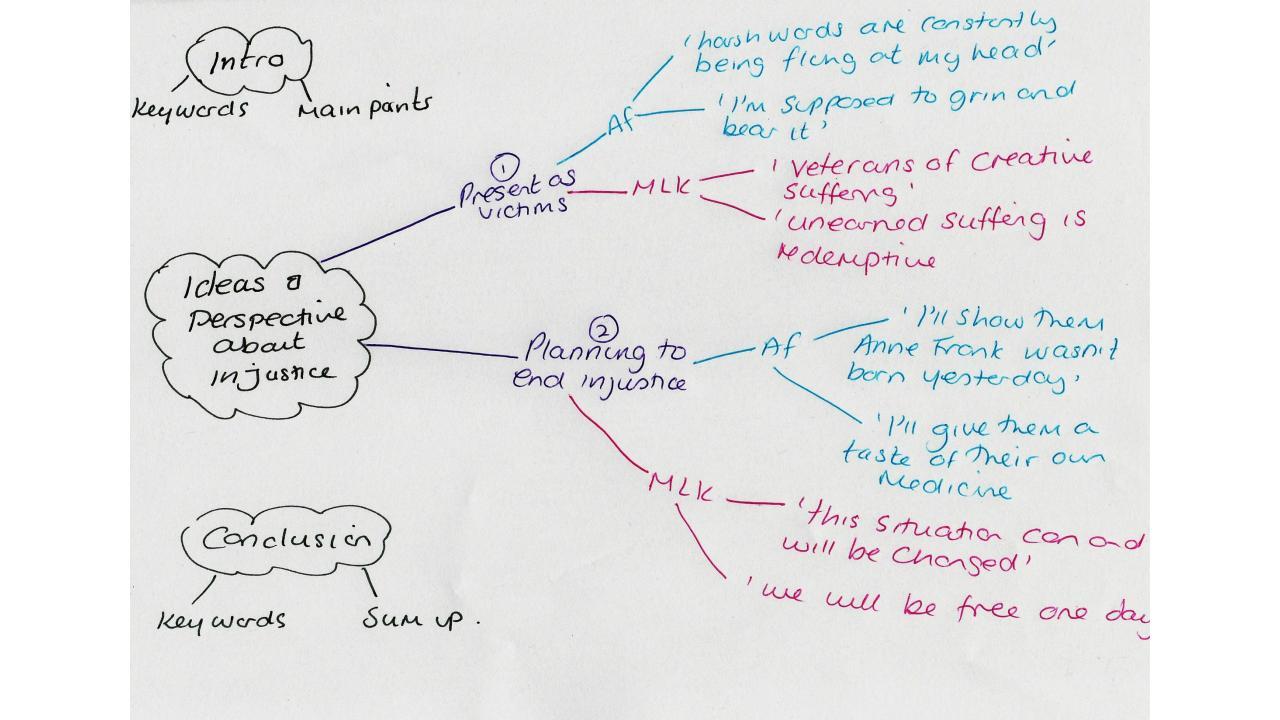 Intro
Keywords
Main points
①
Present as
victims
Af
'harsh words are constantly
being flung at my head'
'I'm supposed to grin and
bear it'
MLK
'veterans of creative
suffering'
'unearned suffering is
redemptive
Ideas &
perspective
about
injustice
②
Planning to
end injustice
Af
'I'll show them
Anne Frank wasn't
born yesterday'
'I'll give them a
taste of their own
medicine
MLK
'this situation can and
will be changed'
'we will be free one day
Conclusion
Keywords
Sum up.